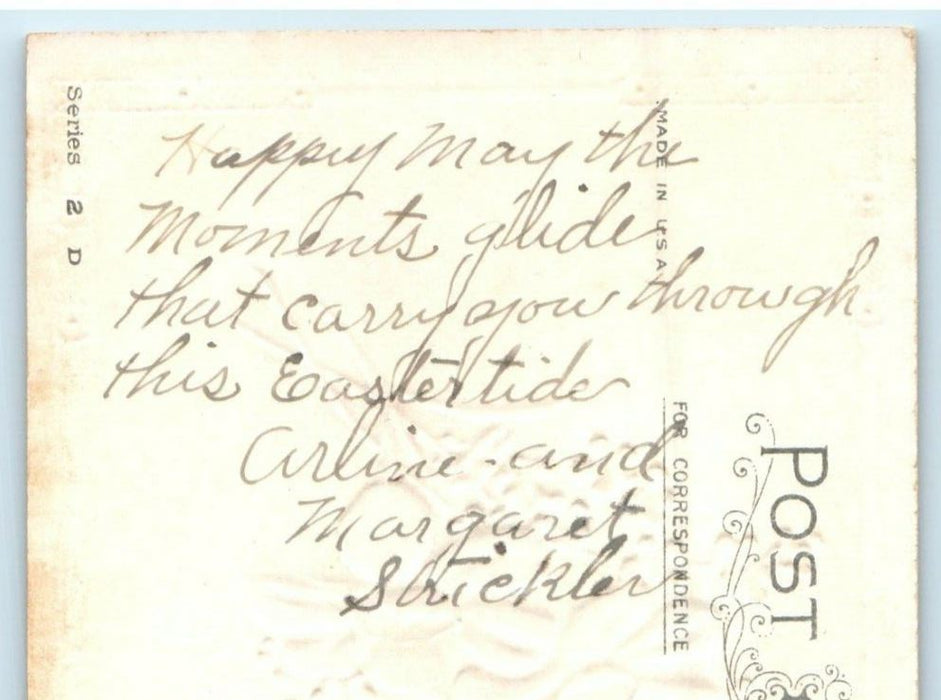 Happy May the
Moments glide
that carry you through
this Eastertide
Arline and
Margaret
Strickler
Series 2 D
MADE IN U.S.A.
FOR CORRESPONDENCE
POST